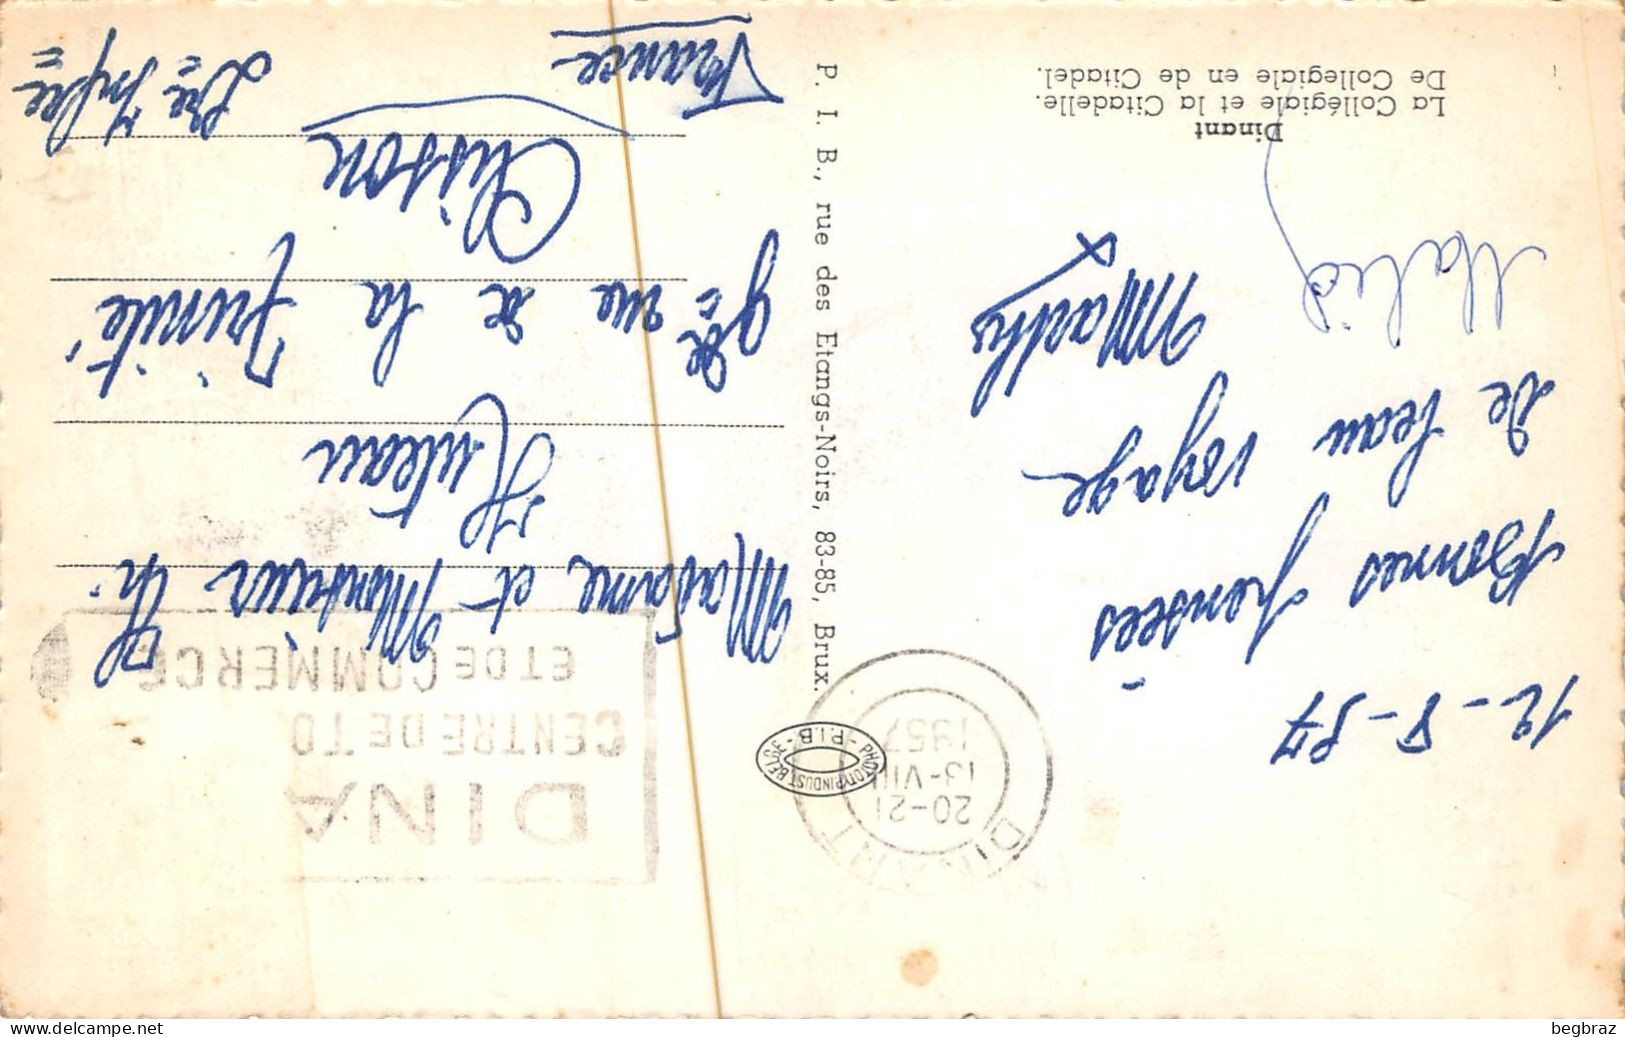 Dinant
La Collégiale et la Citadelle.
De Collegiale en de Citadel.
12-8-57
Bonnes pensées
de beau voyage
P. I. B., rue des Etangs-Noirs, 83-85, Brux.
PHOTOTYP. INDUST. BELGE - P.I.B -
DINANT
20-21
13-VIII
1957
DINA
CENTRE DE TO
ET DE COMMERCE
Madame et Monsieur Th.
Huteau
gde rue de la Trinité
Clisson
Lre Infre
France
begbraz